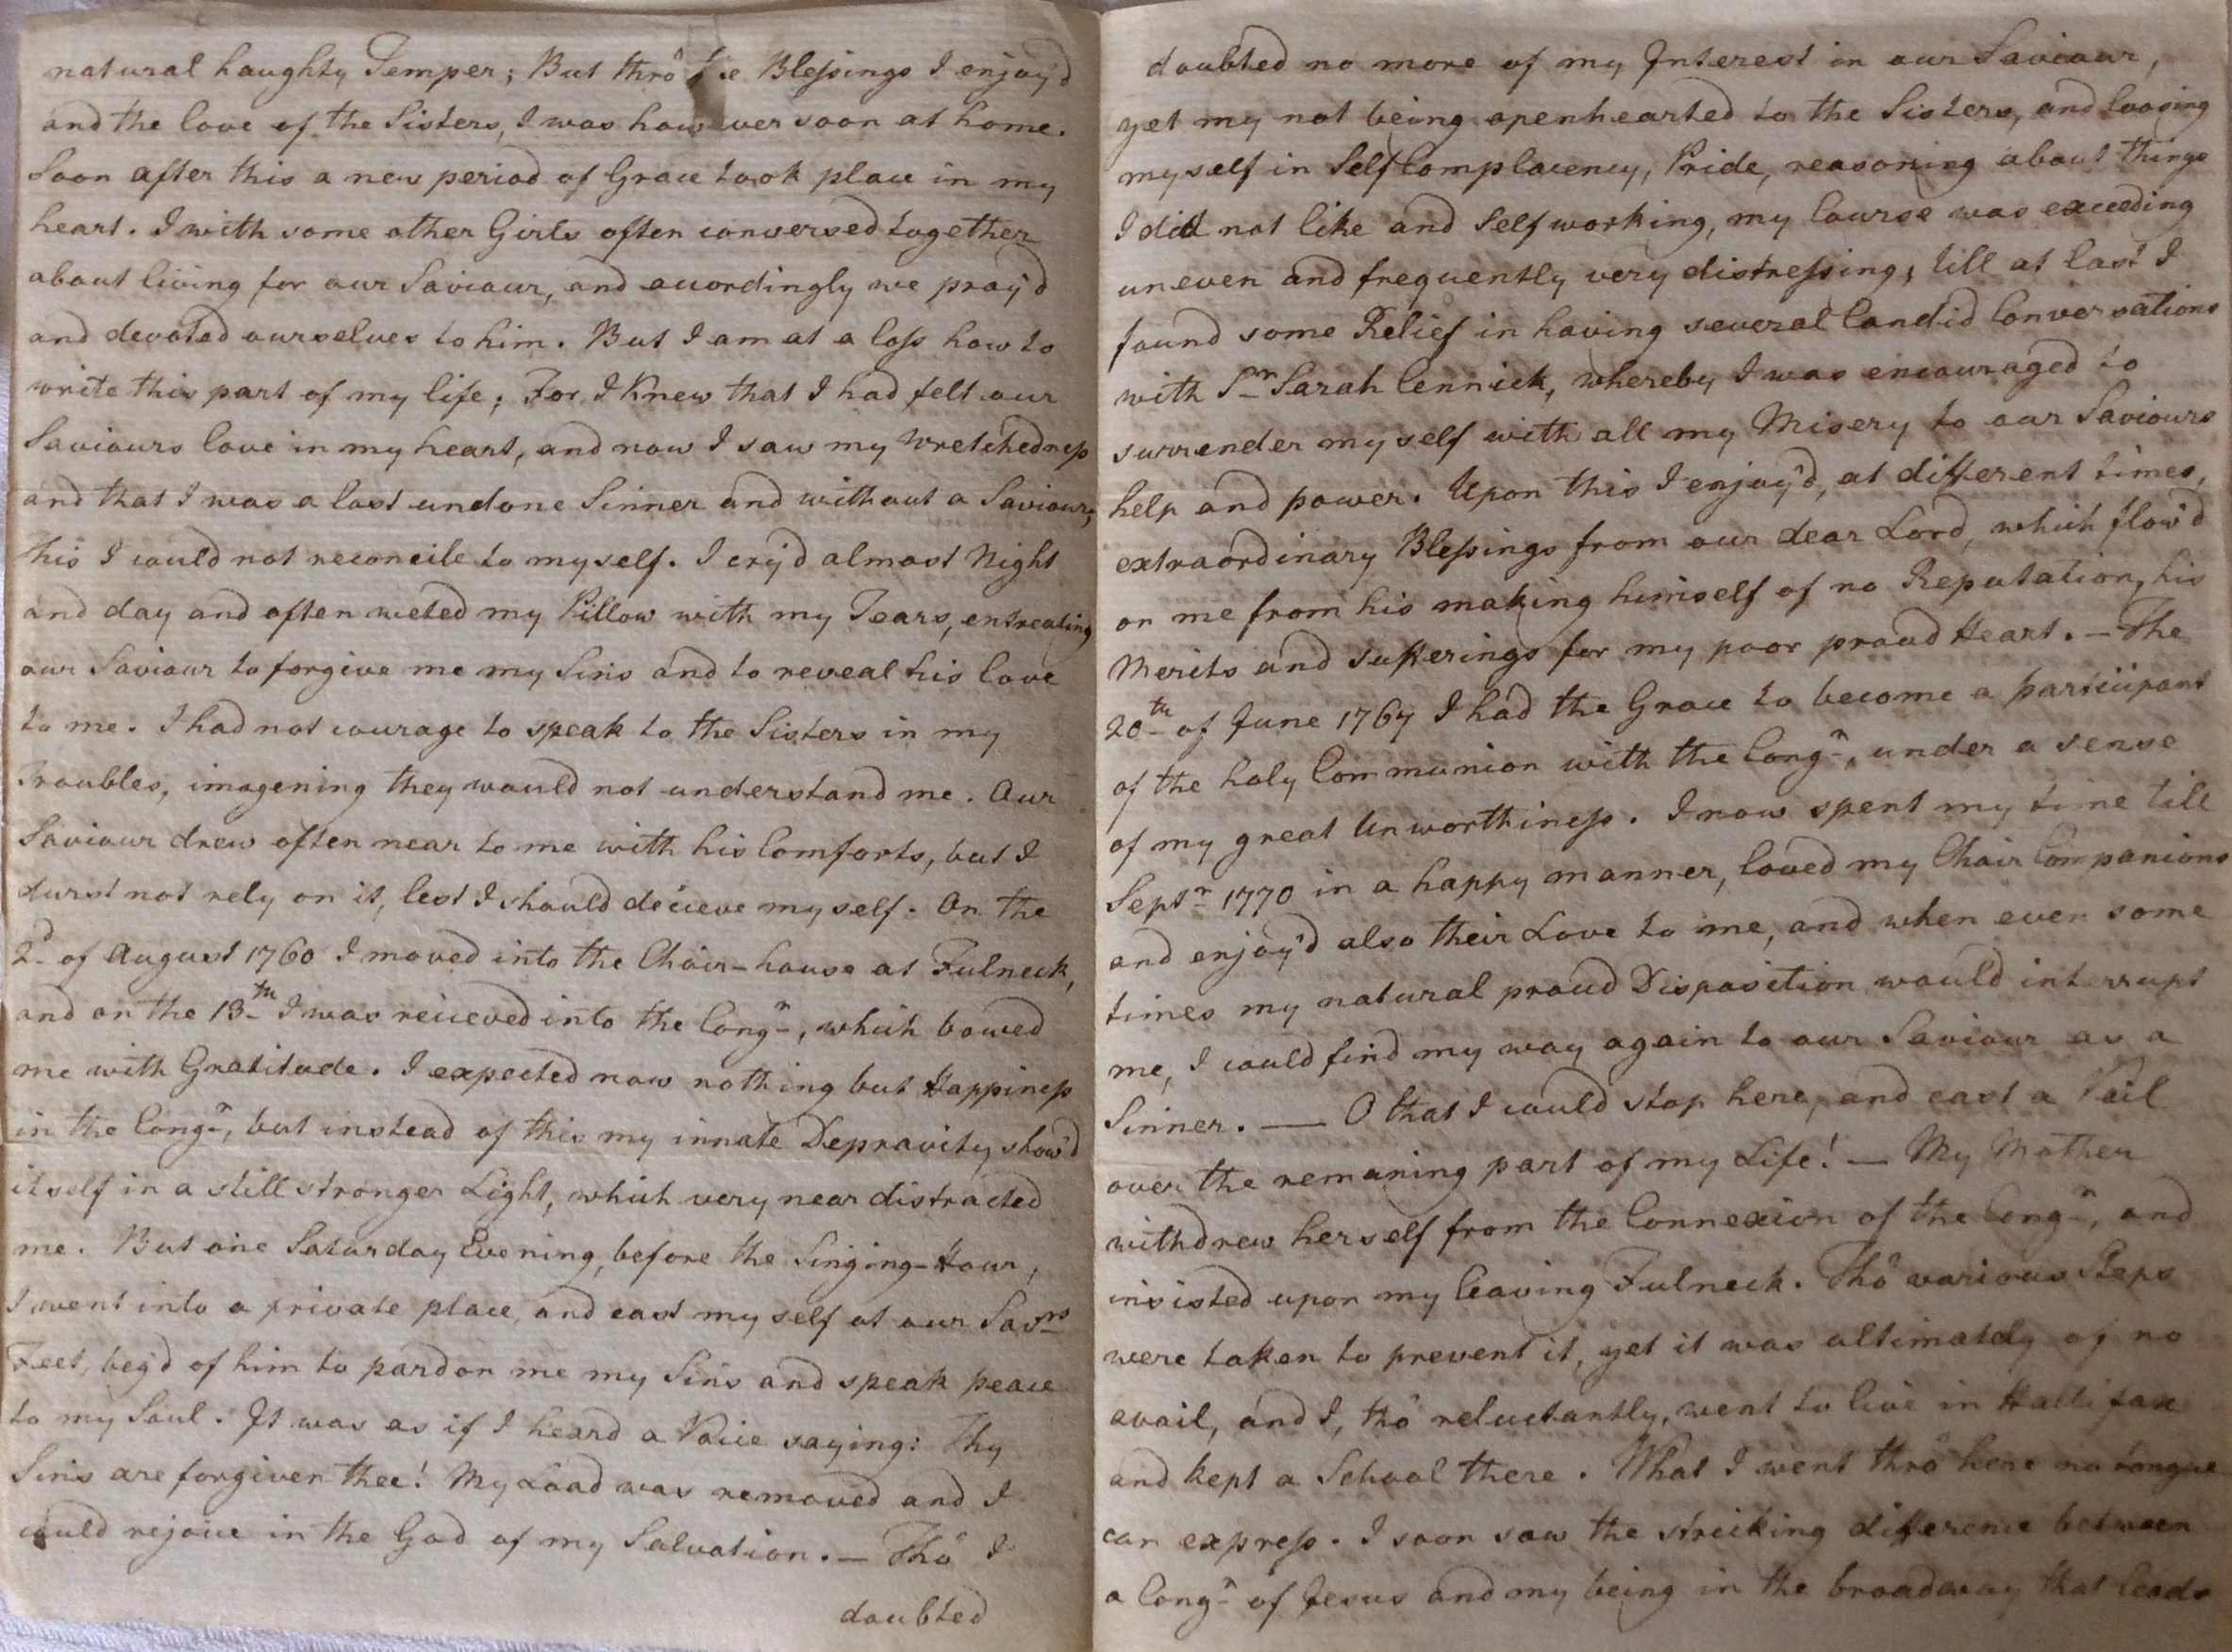 natural haughty Temper; But thrô the Blessings I enjoy'd
and the love of the Sisters, I was however soon at home.
Soon after this a new period of Grace took place in my
heart. I with some other Girls often conversed together
about living for our Saviour, and accordingly we pray'd
and devoted ourselves to him. But I am at a loss how to
write this part of my life; For I Knew that I had felt our
Saviours love in my heart, and now I saw my Wretchedness
and that I was a lost undone Sinner and without a Saviour;
This I could not reconcile to myself. I cry'd almost Night
and day and often weted my Pillow with my Tears, entreating
our Saviour to forgive me my Sins and to reveal his love
to me. I had not courage to speak to the Sisters in my
Troubles, imagening they would not understand me. Our
Saviour drew often near to me with his Comforts, but I
durst not rely on it, lest I should decieve myself. On the
2d of August 1760 I moved into the Choir-house at Fulneck,
and on the 13th I was recieved into the Congn, which bowed
me with Gratitude. I expected now nothing but Happiness
in the Congn, but instead of this my innate Depravity show'd
itself in a still stronger Light, which very near distracted
me. But one Saturday Evening, before the Singing-Hour,
I went into a private place, and cast myself at our Savrs
Feet, beg'd of him to pardon me my Sins and speak peace
to my Soul. It was as if I heard a Voice saying: Thy
Sins are forgiven thee! My Load was removed and I
could rejoice in the God of my Salvation. — Thô I
doubted
doubted no more of my Interest in our Saviour,
yet my not being openhearted to the Sisters, and loosing
myself in Self Complacency, Pride, reasoning about things
I did not like and Selfworking, my Course was exceeding
uneven and frequently very distressing, till at last I
found some Relief in having several Candid Conversations
with Sr Sarah Cennick, whereby I was encouraged to
surrender myself with all my Misery to our Saviours
help and power. Upon this I enjoy'd, at different times,
extraordinary Blessings from our dear Lord, which flow'd
on me from his making himself of no Reputation, his
Merits and sufferings for my poor proud Heart. — The
20th of June 1767 I had the Grace to become a participant
of the holy Communion with the Congn, under a sense
of my great Unworthiness. I now spent my time till
Septr 1770 in a happy manner, loved my Choir Companions
and enjoy'd also their Love to me, and when even some
times my natural proud Disposition would interrupt
me, I could find my way again to our Saviour as a
Sinner. — O that I could stop here, and cast a Vail
over the remaning part of my Life! — My Mother
withdrew herself from the Connexion of the Congn, and
insisted upon my leaving Fulneck. Thô various Steps
were taken to prevent it, yet it was ultimately of no
avail, and I, thô reluctantly, went to live in Hallifax
and kept a School there. What I went thrô here no tongue
can express. I soon saw the streiking difference between
a Congn of Jesus and my being in the broadway that leads